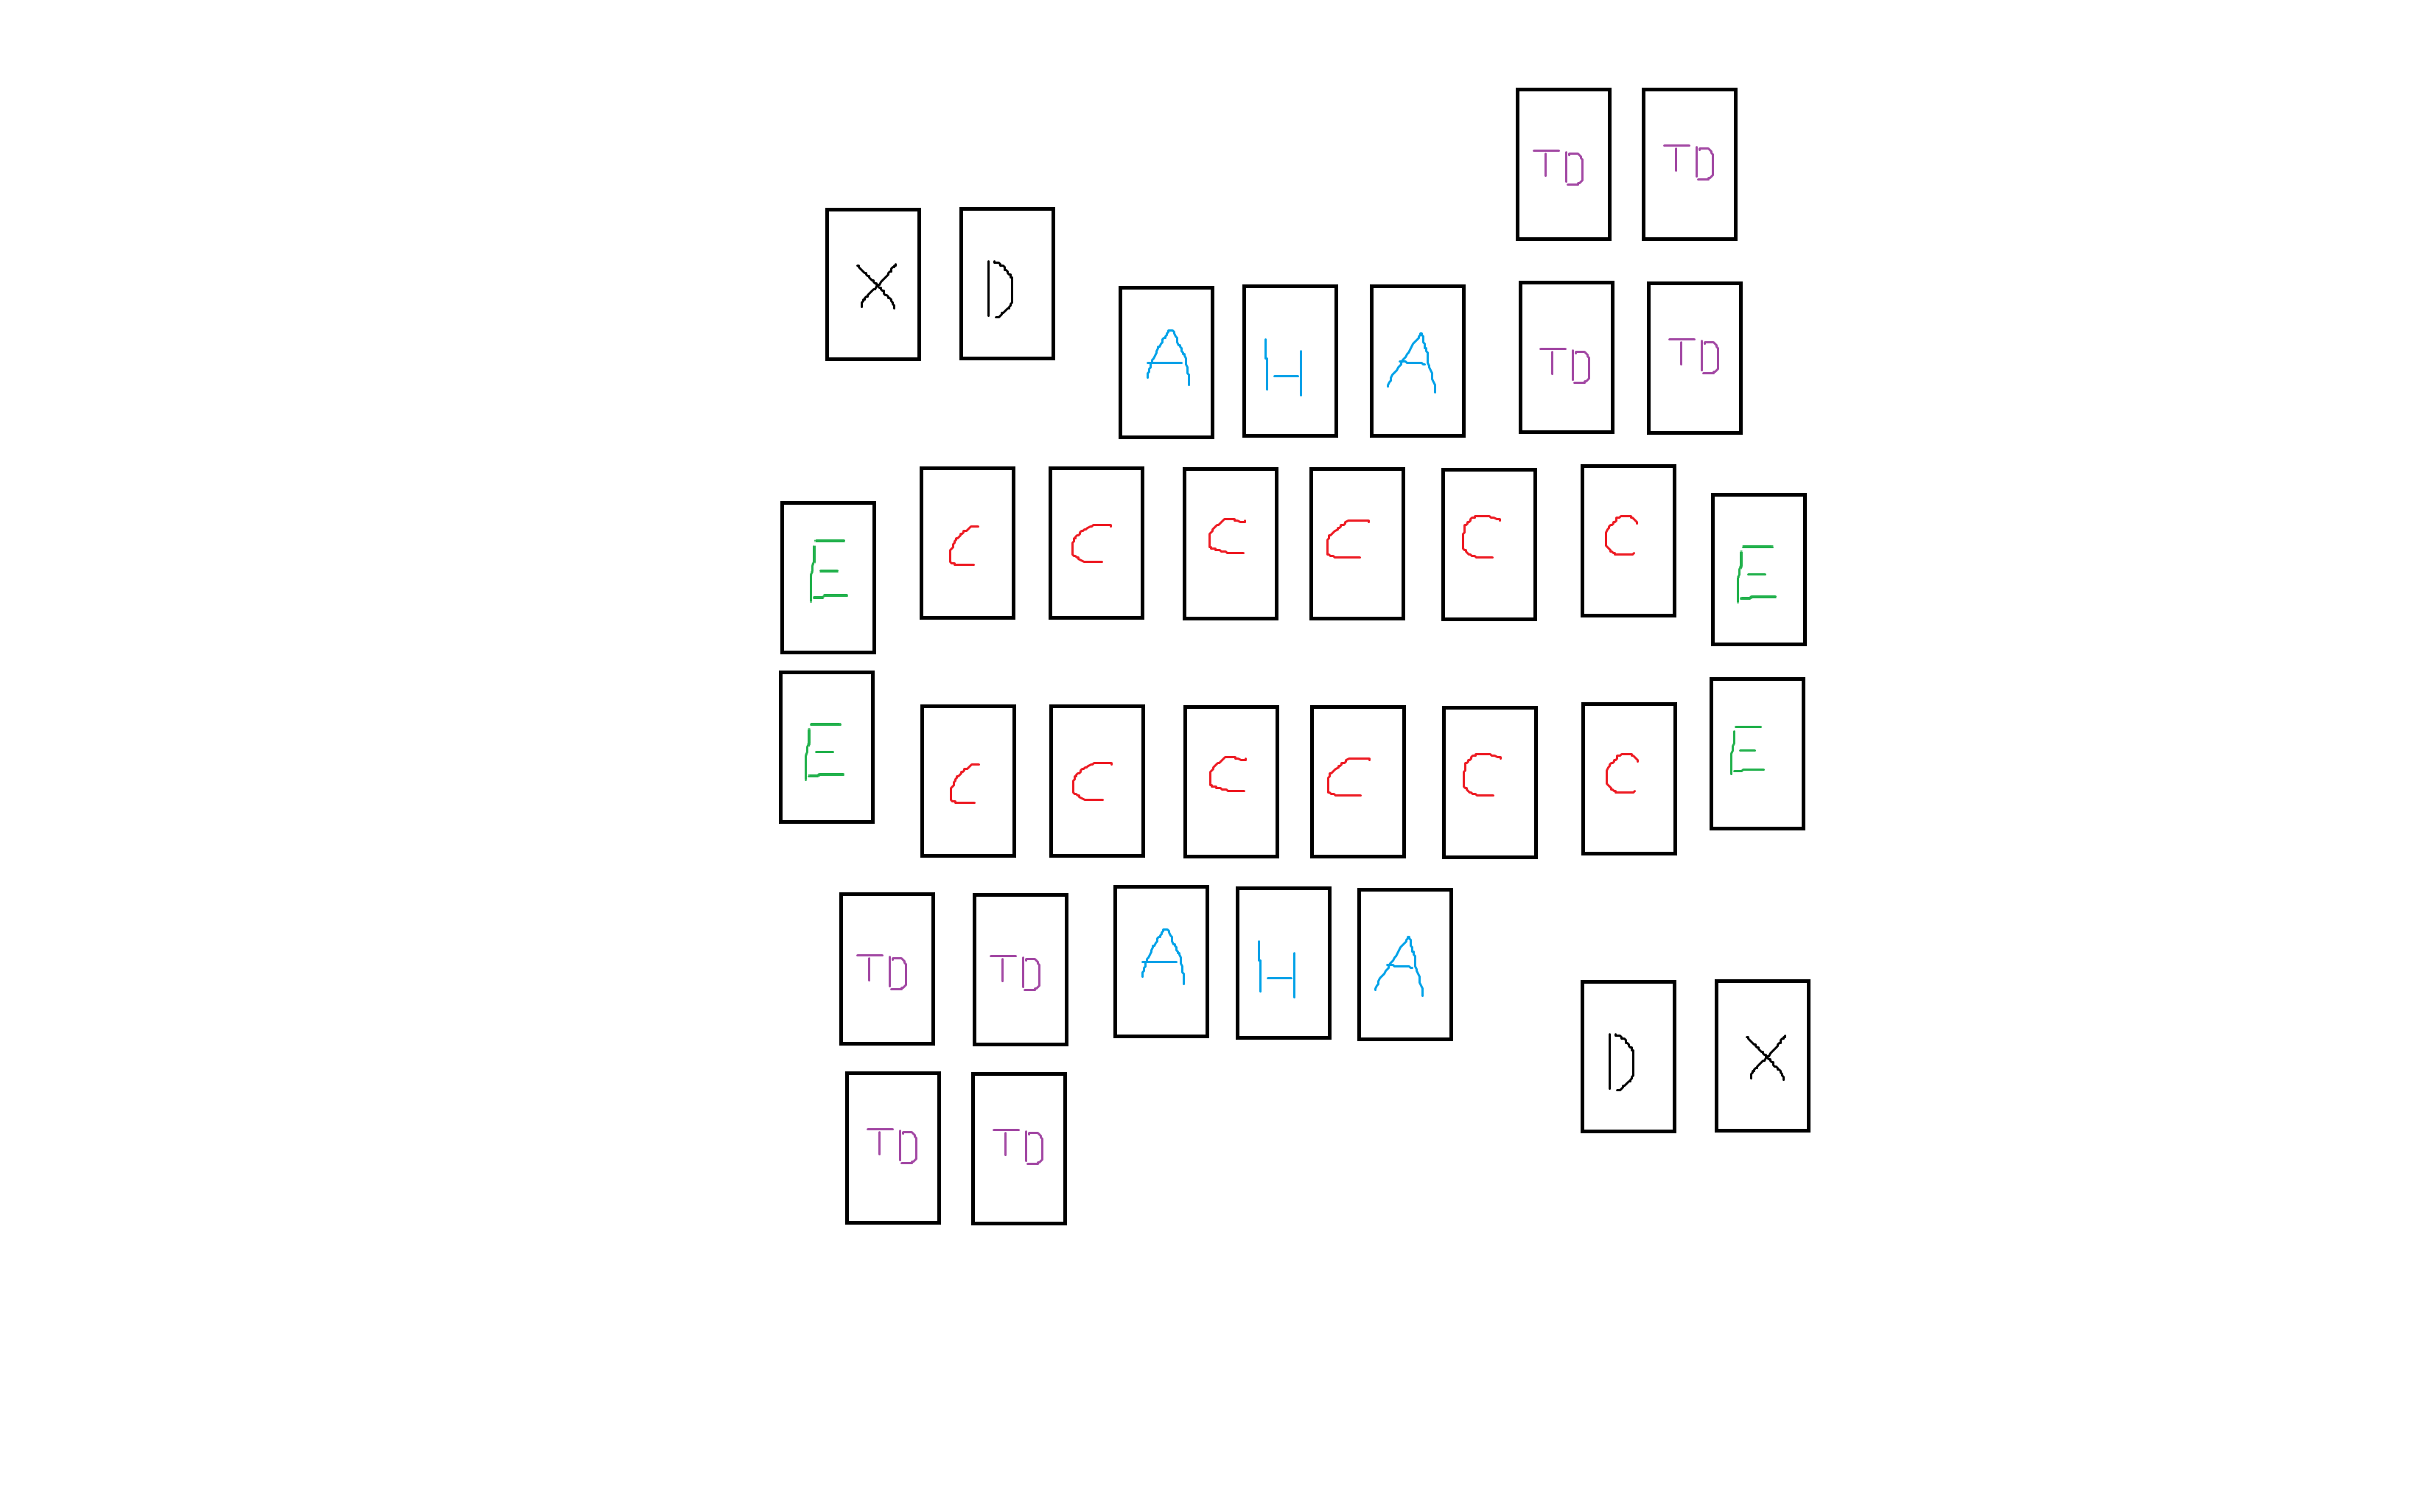 TD TD
X D
A H A TD TD
E C C C C C C E
E C C C C C C E
TD TD A H A
D X
TD TD